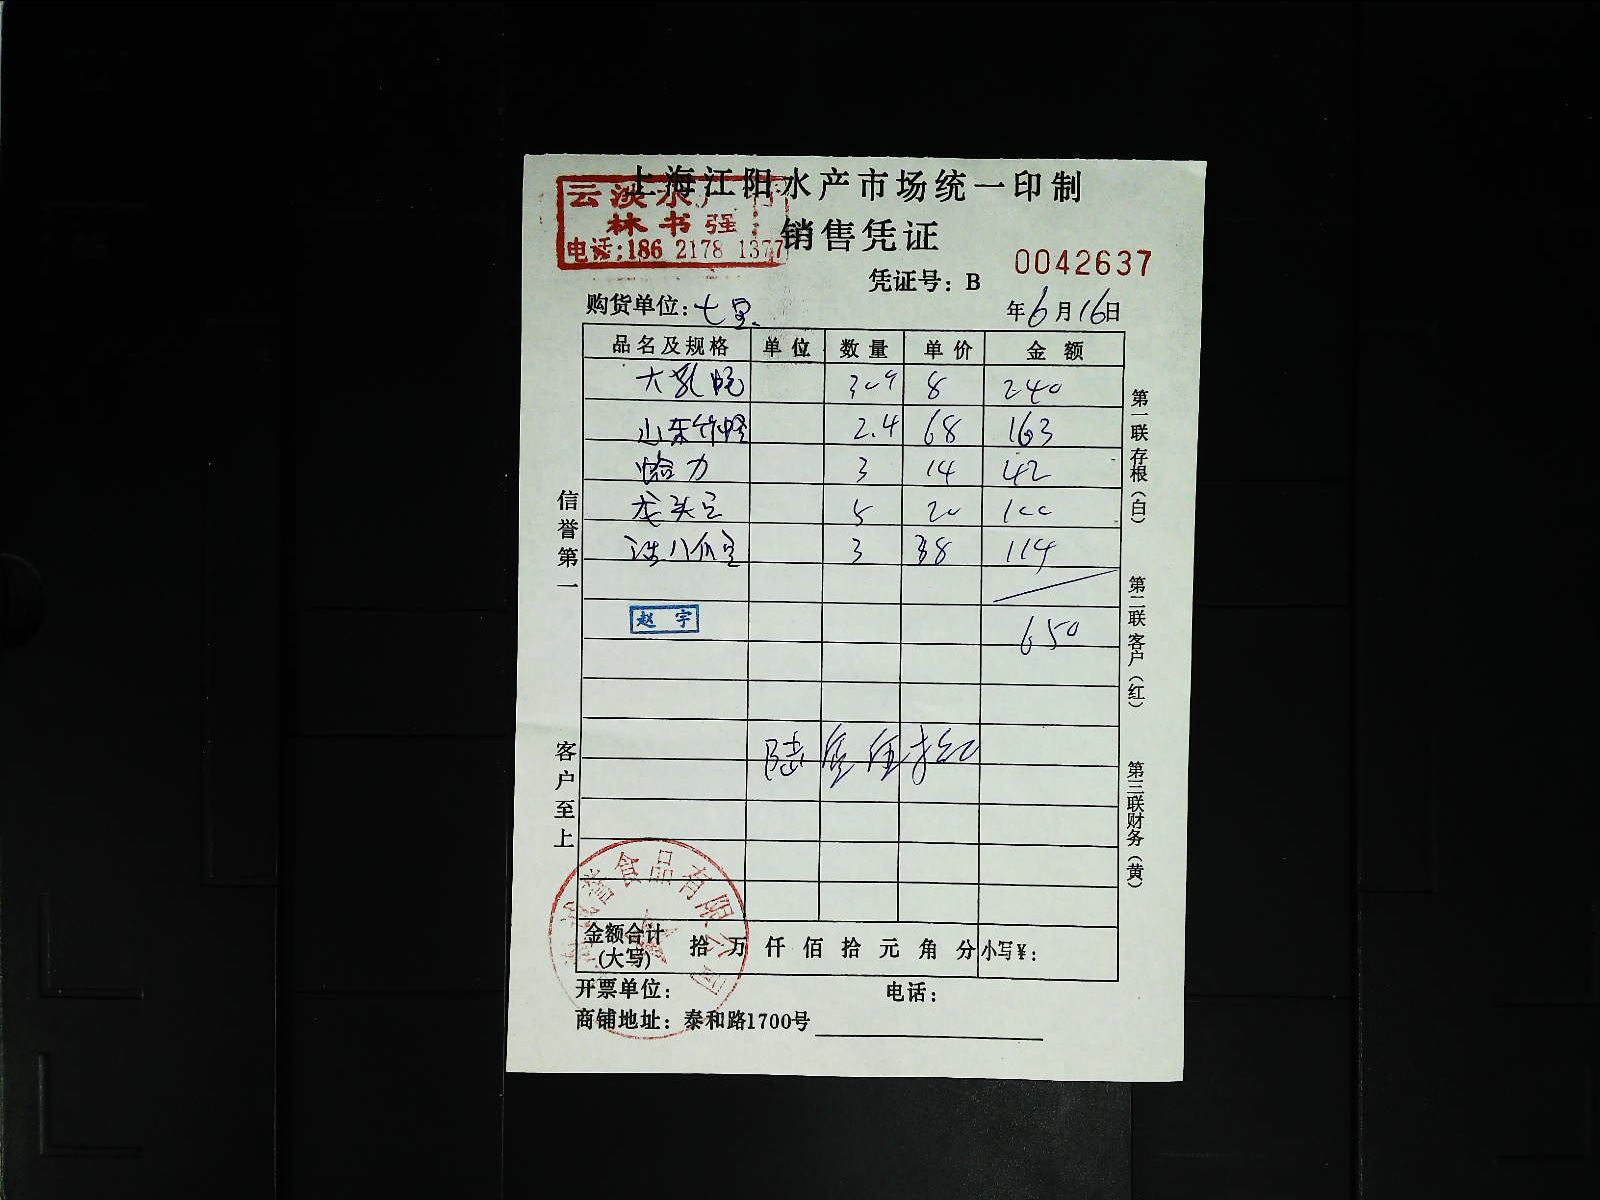 上海江阳水产市场统一印制
云淡水产行
林书强
电话:186 2178 1377
销售凭证
凭证号: B 0042637
购货单位: 七宝
年6月16日
品名及规格 单位 数量 单价 金额
大乳 8 240
山东竹蛏 2.4 68 163
蛤力 3 14 42
龙头 5 20 100
八爪 3 38 114
赵宇 650
陆 伍 拾
金额合计(大写) 拾 万 仟 佰 拾 元 角 分 小写¥:
开票单位: 电话:
商铺地址: 泰和路1700号
信誉第一
客户至上
第一联 存根(白)
第二联 客户(红)
第三联 财务(黄)
誉食品有限公司